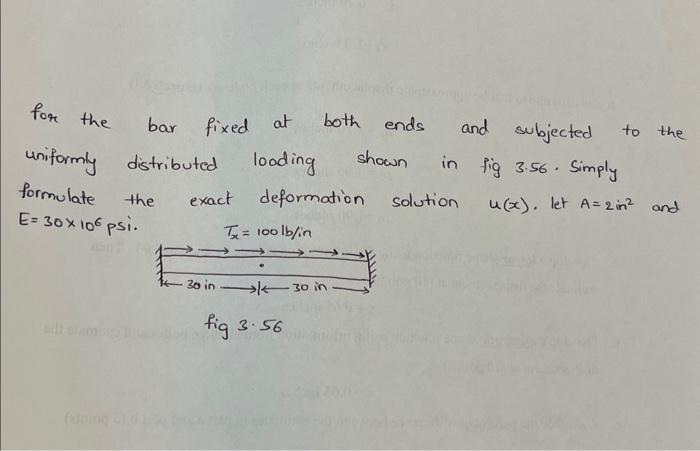 for the bar fixed at both ends and subjected to the
uniformly distributed loading shown in fig 3.56. Simply
formulate the exact deformation solution u(x). let A = 2in² and
E = 30 × 10⁶ psi.
Tx = 100 lb/in
30 in 30 in
fig 3.56